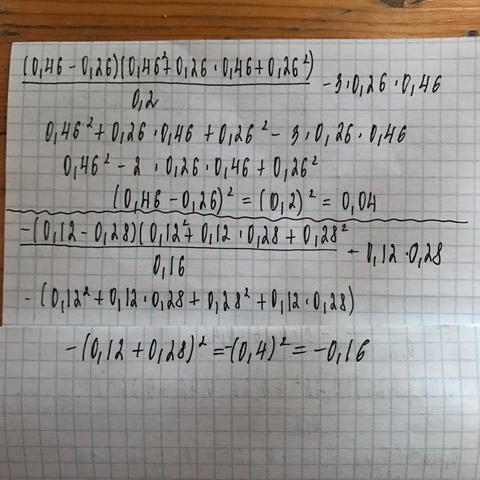 (0,46 - 0,26)(0,46² + 0,26 · 0,46 + 0,26²) / 0,2 - 3 · 0,26 · 0,46
0,46² + 0,26 · 0,46 + 0,26² - 3 · 0,26 · 0,46
0,46² - 2 · 0,26 · 0,46 + 0,26²
(0,46 - 0,26)² = (0,2)² = 0,04
-(0,12 - 0,28)(0,12² + 0,12 · 0,28 + 0,28² / 0,16 - 0,12 · 0,28
- (0,12² + 0,12 · 0,28 + 0,28² + 0,12 · 0,28)
-(0,12 + 0,28)² = -(0,4)² = -0,16